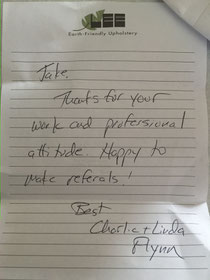 LEE
Earth-Friendly Upholstery
Jake,
Thanks for your
work and professional
attitude. Happy to
make referrals!
Best
Charlie + Linda
Flynn